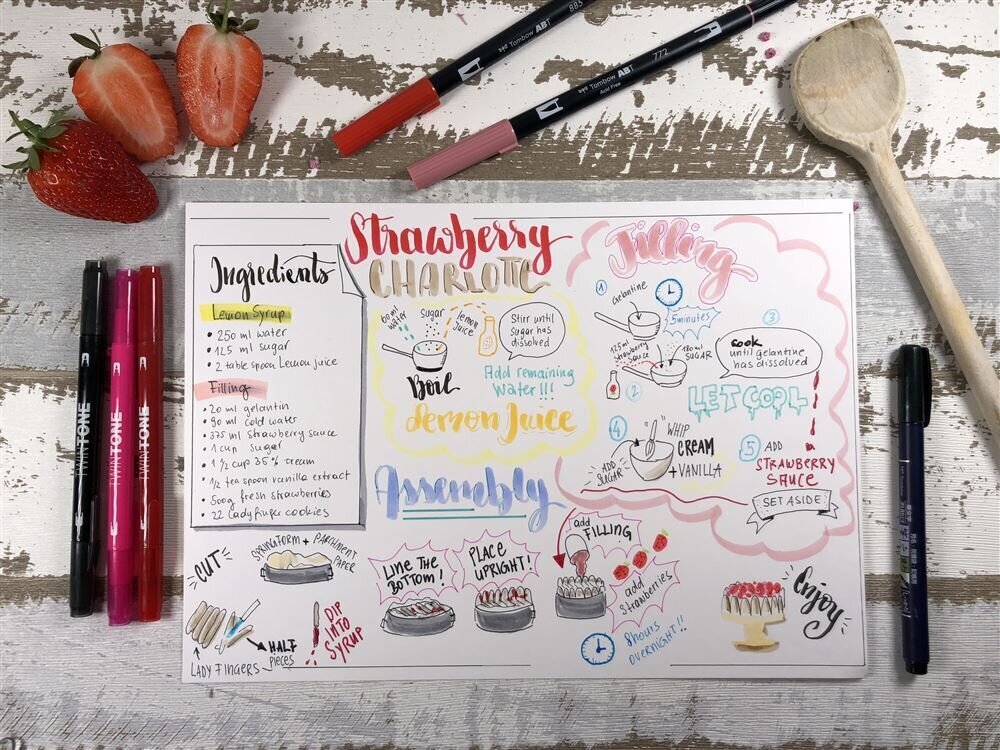 885
Tombow ABT
772
Tombow ABT
Acid Free
TWINTONE
TWINTONE
Strawberry
CHARLOTTE
Ingredients
Lemon Syrup
• 250 ml water
• 125 ml sugar
• 2 table spoon Lemon juice
Filling
• 20 ml gelantin
• 90 ml cold water
• 375 ml strawberry sauce
• 1 cup sugar
• 1 1/2 cup 35% cream
• 1/2 tea spoon vanilla extract
• 500g fresh strawberries
• 22 Ladyfinger cookies
60ml
water
Sugar
lemon
juice
Stirr until
Sugar has
dissolved
Boil
Add remaining
Water!!!
Lemon Juice
Filling
1
Gelantine
5 minutes
125ml
Strawberry
sauce
180ml
SUGAR
2
3
cook
until gelantine
has dissolved
LET COOL
4
ADD
SUGAR
"WHIP
CREAM
+VANILLA
5 ADD
STRAWBERRY
SAUCE
SET ASIDE
Assembly
CUT
SPRINGFORM + PARCHMENT
PAPER
LADY FINGERS
HALF
PIECES
DIP
INTO
SYRUP
LINE THE
BOTTOM!
PLACE
UPRIGHT!
add
FILLING
add
Strawberries
8hours
OVERNIGHT!!
Enjoy